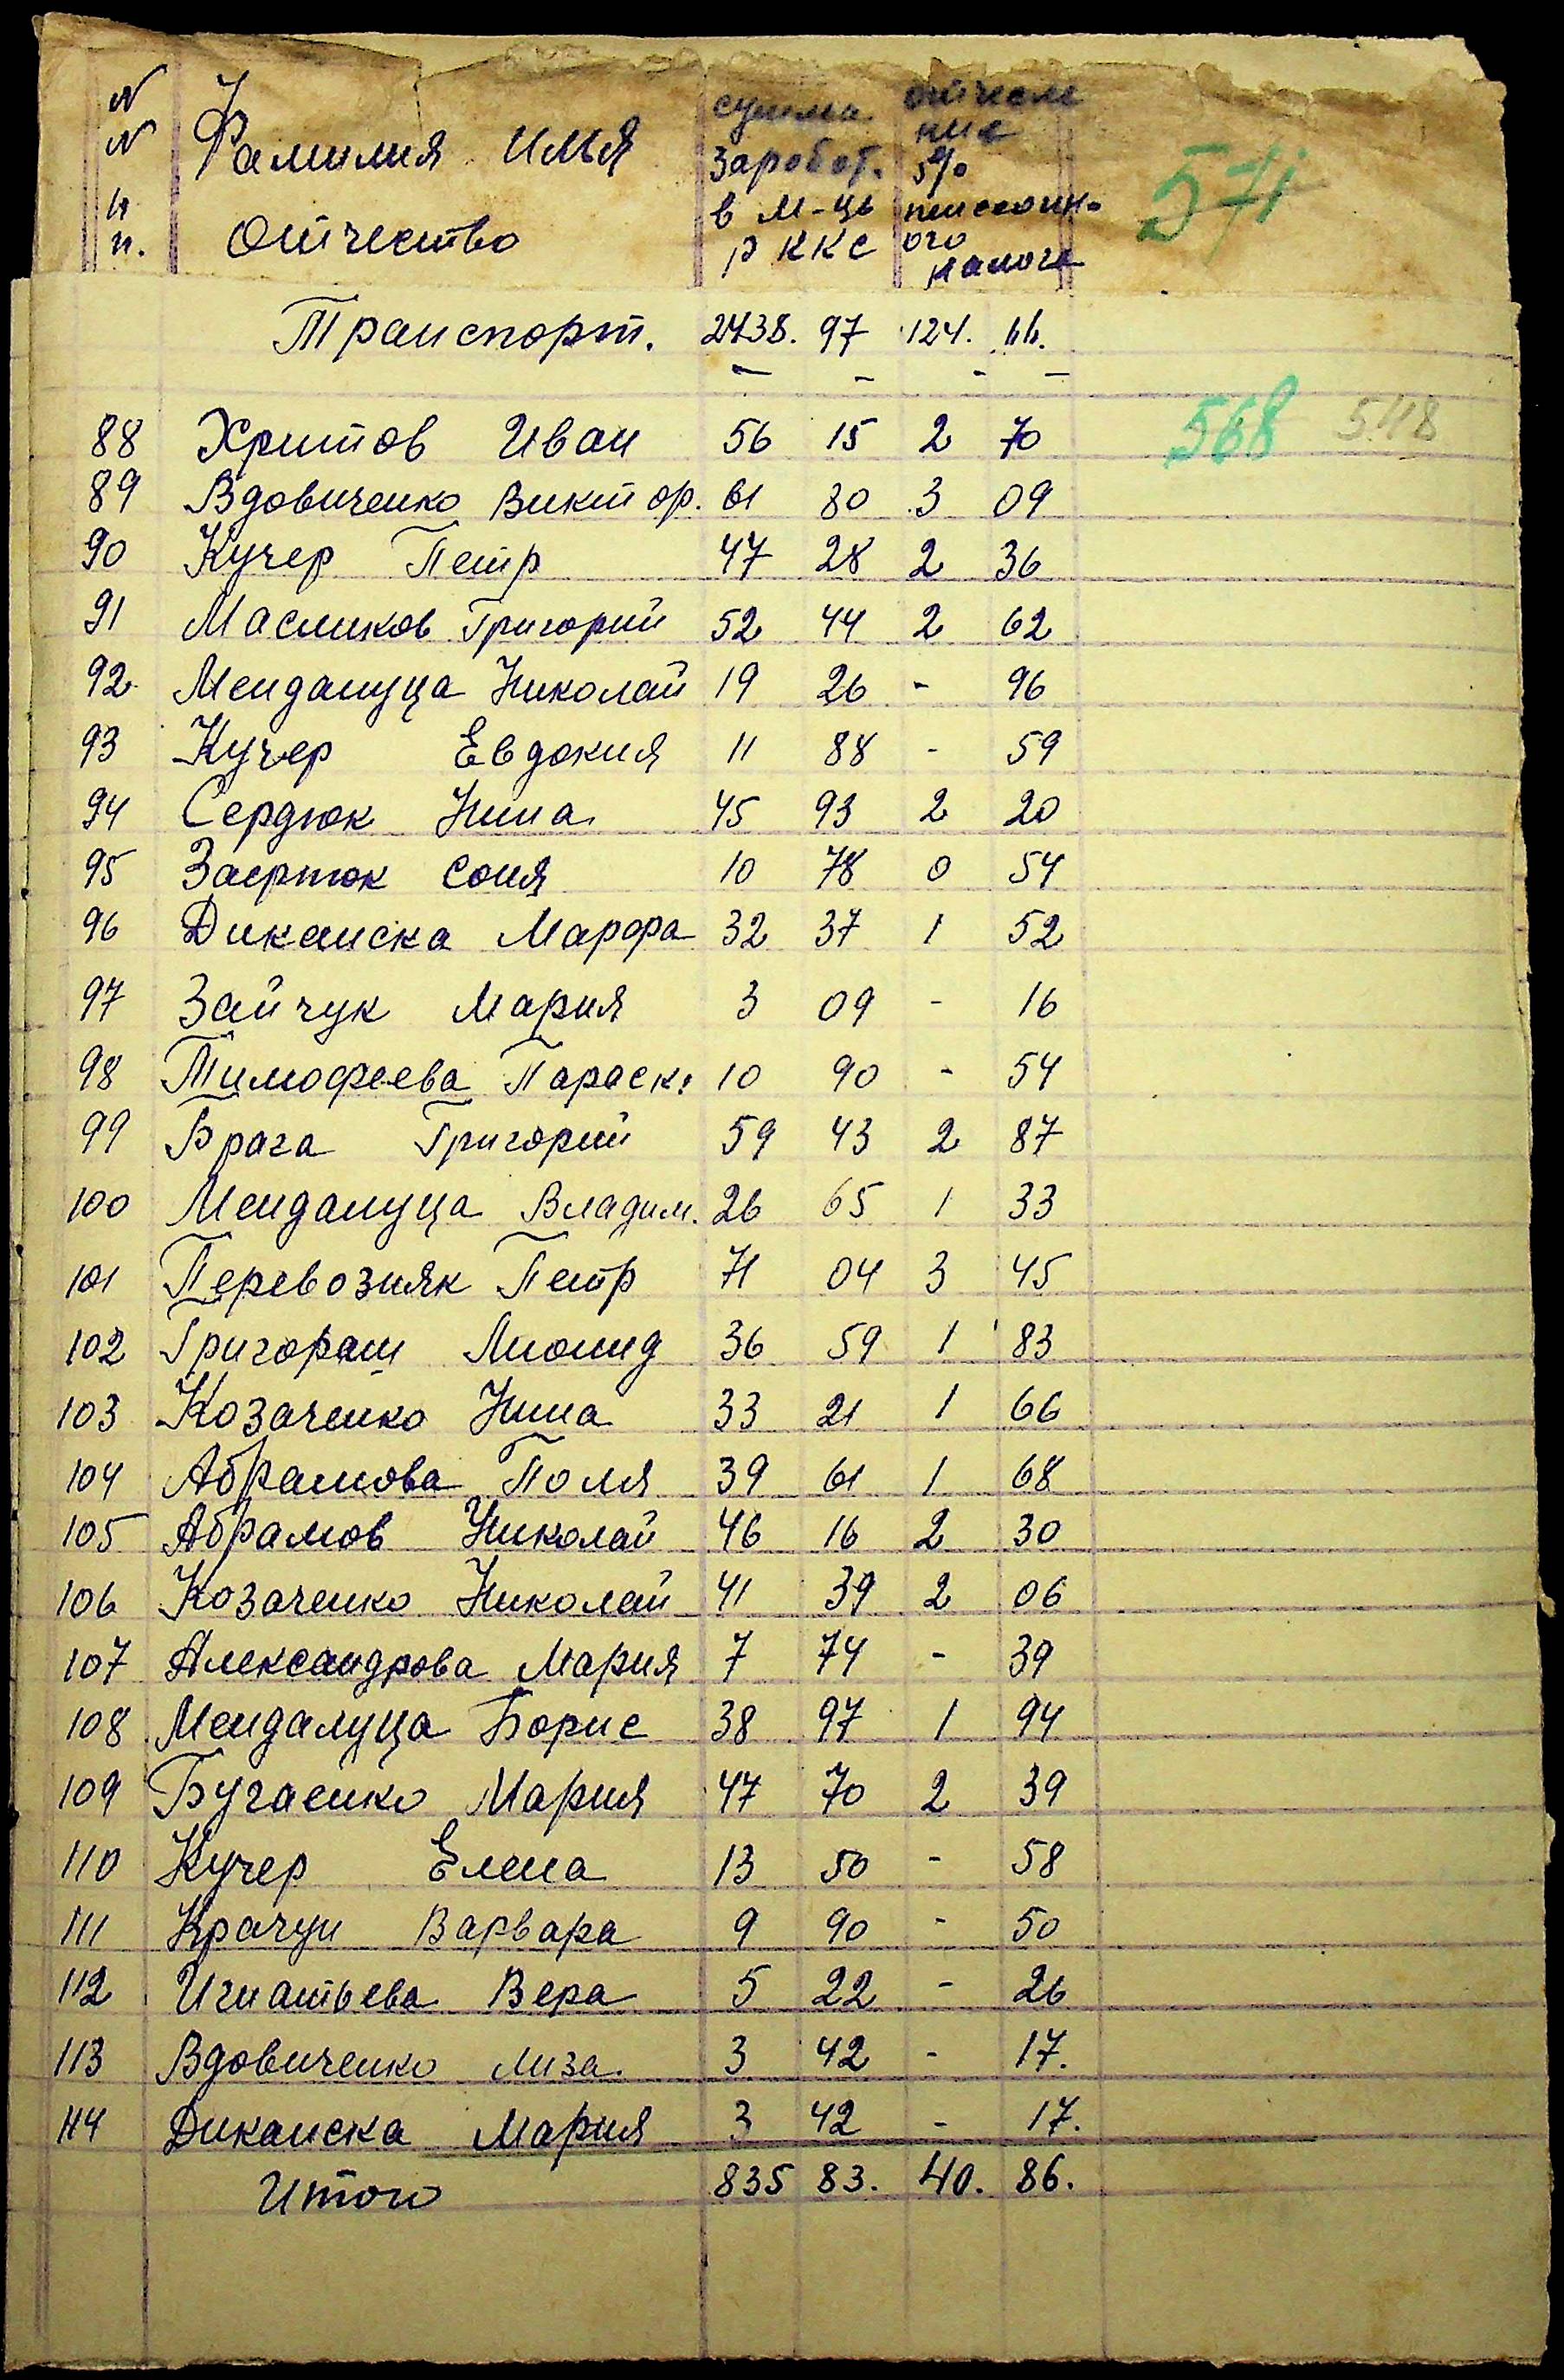 N
N
п
п.
Фамилия имья
Отчество
сумма
заробот.
в м-ць
р ККС
отчисле
ние
5%
пенсеонн-
ого
налога
571
Транспорт. 2438. 97 124. 66.
88 Хритов Иван 56 15 2 70 568 548
89 Вдовиченко Виктор. 61 80 3 09
90 Кучер Петр 47 28 2 36
91 Масликов Григорий 52 44 2 62
92. Мендалуца Николай 19 26 - 96
93 Кучер Евдокия 11 88 - 59
94 Сердюк Нина 45 93 2 20
95 Заертюк Соня 10 78 0 54
96 Диканска Марфа 32 37 1 52
97 Зайчук Мария 3 09 - 16
98 Тимофеева Параск. 10 90 - 54
99 Брага Григорий 59 43 2 87
100 Мендалуца Владим. 26 65 1 33
101 Перевозняк Петр 71 04 3 45
102 Григораш Лионид 36 59 1 83
103 Козаченко Нина 33 21 1 66
104 Абрамова Поля 39 61 1 68
105 Абрамов Николай 46 16 2 30
106 Козаченко Николай 41 39 2 06
107 Александрова Мария 7 74 - 39
108 Мендалуца Борис 38 97 1 94
109 Бугаенко Мария 47 70 2 39
110 Кучер Елена 13 50 - 58
111 Крачун Варвара 9 90 - 50
112 Игнатьева Вера 5 22 - 26
113 Вдовиченко Лиза. 3 42 - 17.
114 Диканска Мария 3 42 - 17.
Итого 835 83. 40. 86.